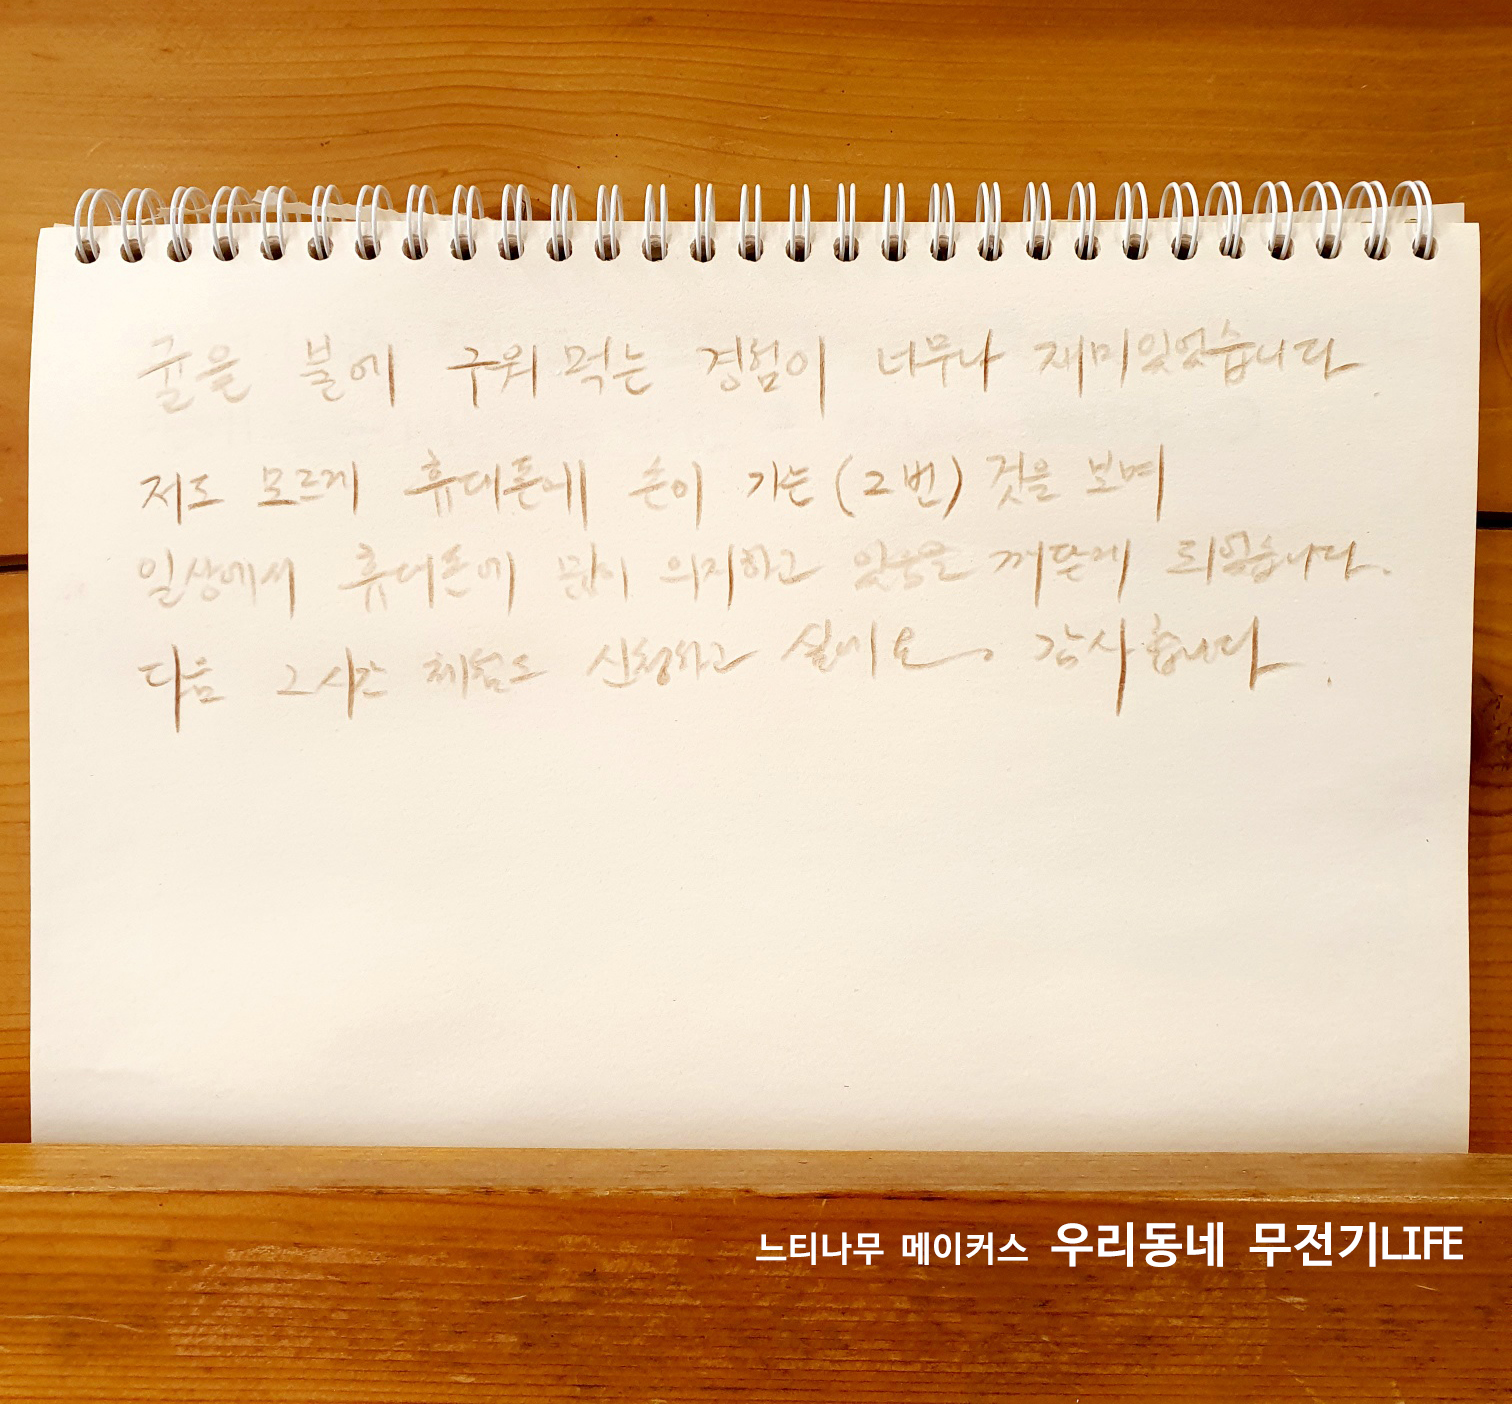 귤을 불에 구워 먹는 경험이 너무나 재미있었습니다.
저도 모르게 휴대폰에 손이 가는 (2번) 것을 보며
일상에서 휴대폰에 많이 의지하고 있음을 깨닫게 되었습니다.
다음 2시간 체험도 신청하고 싶네요. 감사합니다.
느티나무 메이커스 우리동네 무전기LIFE